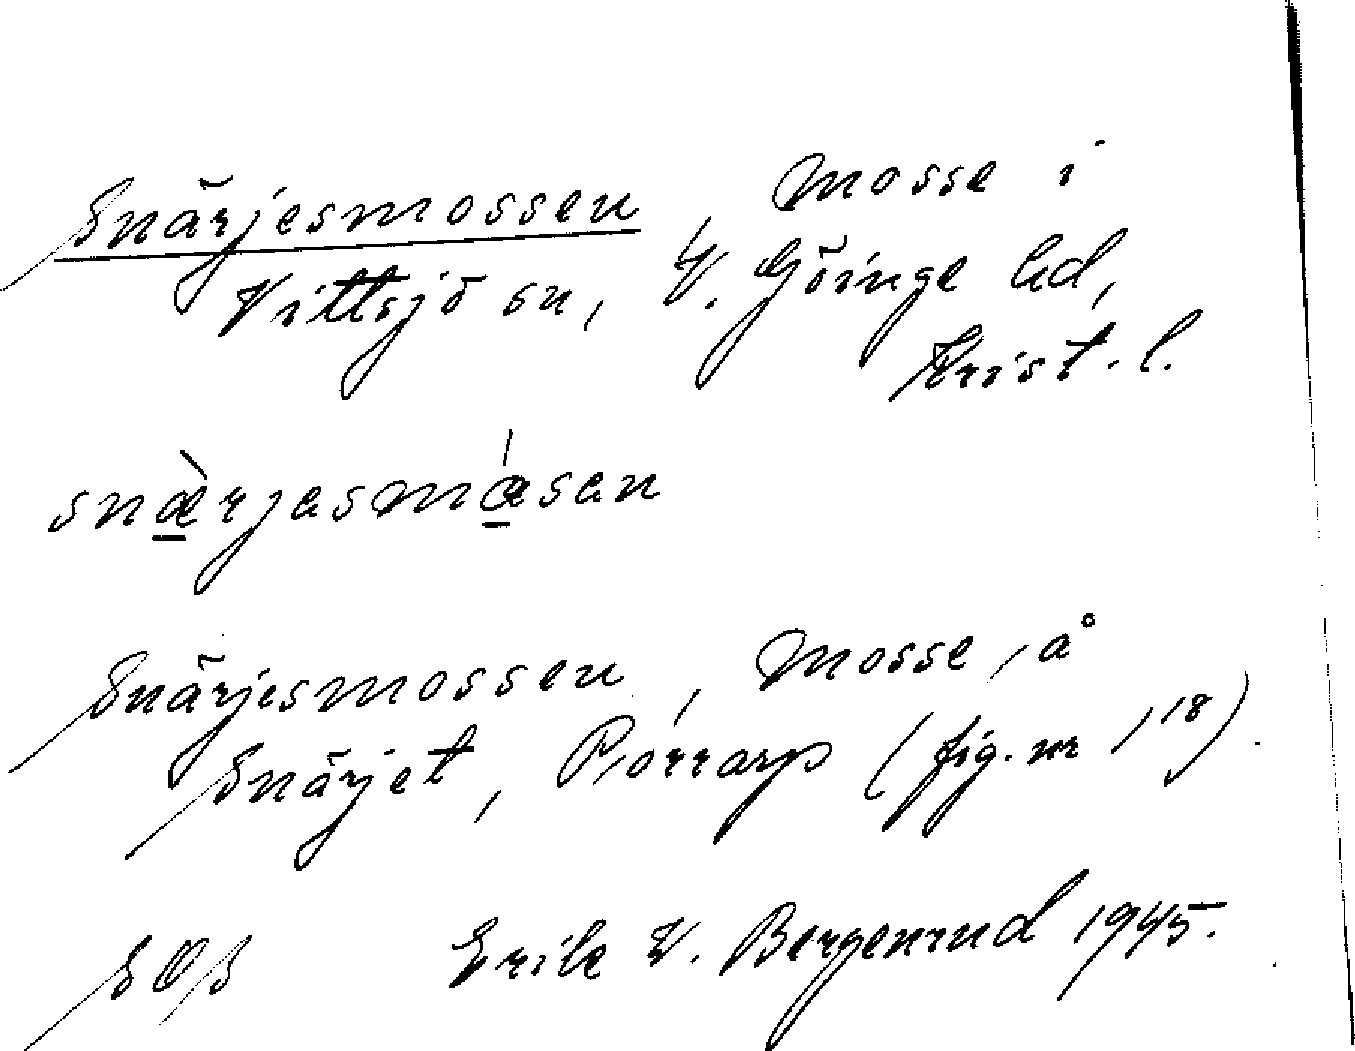 Snärjesmossen, mosse i
Vittsjö sn, V. Göinge hd,
Krist. l.
snæ̀rjesmåsen
Snärjesmossen, mosse, å
Snärjet, Porrarp (fig. nr 118).
SOS Erik V. Bergenrud 1945.